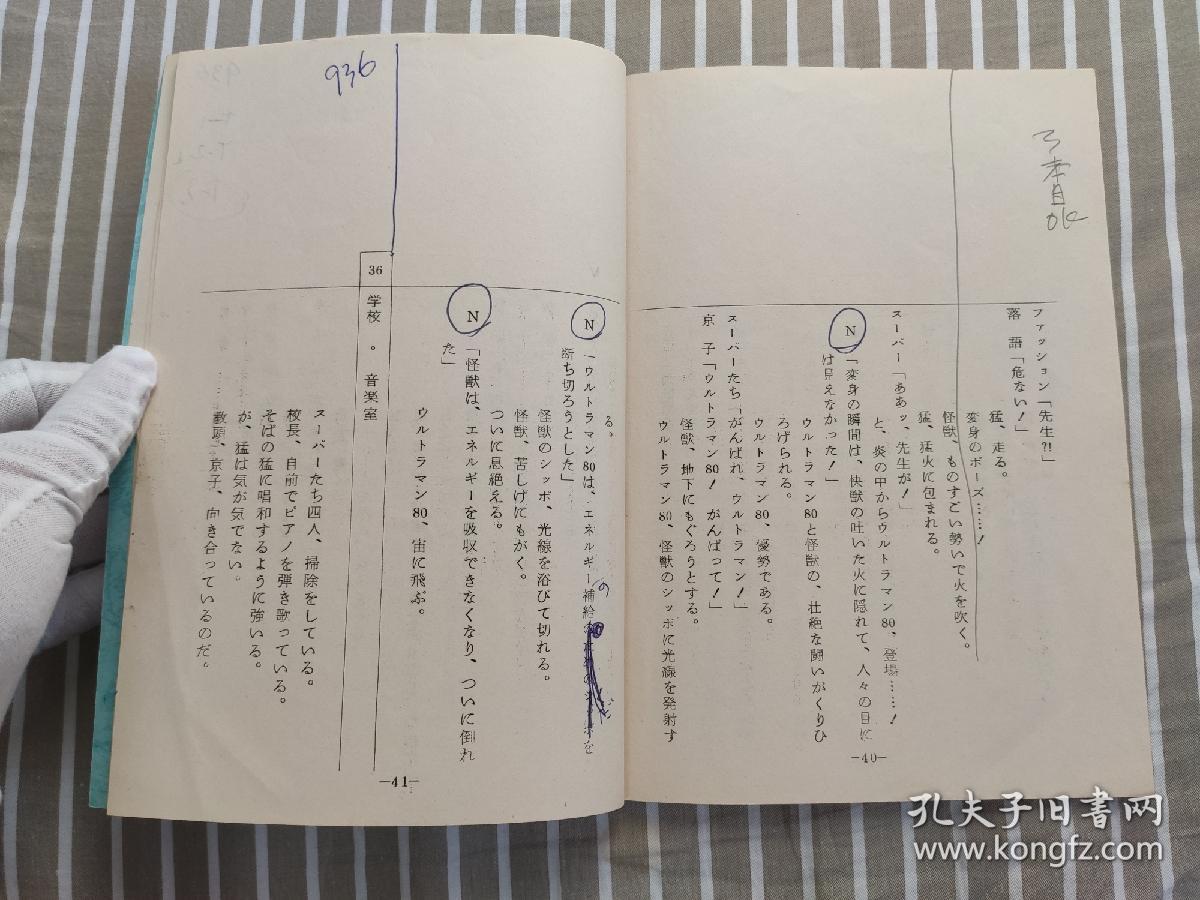 ファッション「先生?!」
落語「危ない!」
猛、走る。
変身のポーズ……!
怪獣、ものすごい勢いで火を吹く。
猛、猛火に包まれる。
スーパー「ああッ、先生が!」
と、炎の中からウルトラマン80、登場……!
N「変身の瞬間は、快獣の吐いた火に隠れて、人々の目に
は見えなかった!」
ウルトラマン80と怪獣の、壮絶な闘いがくりひ
ろげられる。
ウルトラマン80、優勢である。
スーパーたち「がんばれ、ウルトラマン!」
京子「ウルトラマン80! がんばって!」
怪獣、地下にもぐろうとする。
ウルトラマン80、怪獣のシッポに光線を発射す
—40—
る。
N「ウルトラマン80は、エネルギー補給の
を
断ち切ろうとした」
怪獣のシッポ、光線を浴びて切れる。
怪獣、苦しげにもがく。
ついに息絶える。
N「怪獣は、エネルギーを吸収できなくなり、ついに倒れ
た」
ウルトラマン80、宙に飛ぶ。
936
36 学校。音楽室
スーパーたち四人、掃除をしている。
校長、自前でピアノを弾き歌っている。
そばの猛に唱和するように強いる。
が、猛は気が気でない。
教頭、京子、向き合っているのだ。
—41—
孔夫子旧书网
www.kongfz.com